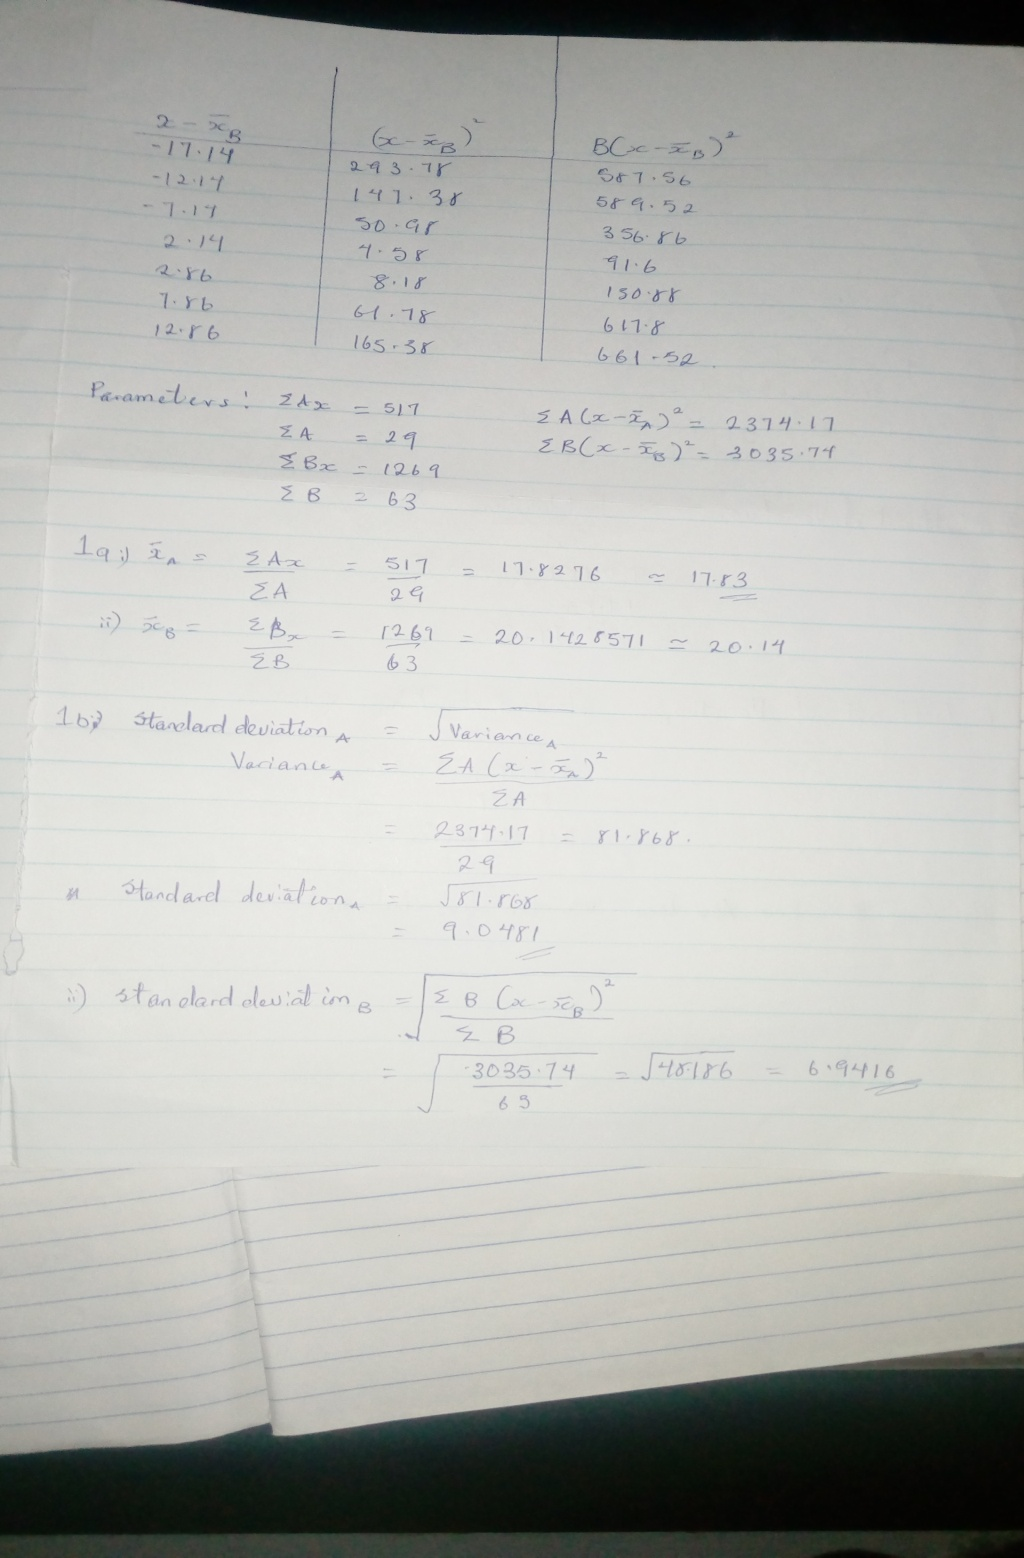 x - x̄B (x - x̄B)² B(x - x̄B)²
-17.14 293.78 587.56
-12.14 147.38 589.52
-7.14 50.98 356.86
2.14 4.58 91.6
2.86 8.18 150.88
7.86 61.78 617.8
12.86 165.38 661.52
Parameters: ΣAx = 517 ΣA(x - x̄A)² = 2374.17
ΣA = 29 ΣB(x - x̄B)² = 3035.74
ΣBx = 1269
ΣB = 63
1a i) x̄A = ΣAx/ΣA = 517/29 = 17.8276 ≈ 17.83
ii) x̄B = ΣBx/ΣB = 1269/63 = 20.1428571 ≈ 20.14
1b i) Standard deviation A = √Variance A
Variance A = ΣA(x - x̄A)²/ΣA
= 2374.17/29 = 81.868.
Standard deviation A = √81.868
= 9.0481
ii) standard deviation B = √ΣB(x - x̄B)²/ΣB
= √3035.74/63 = √48.186 = 6.9416